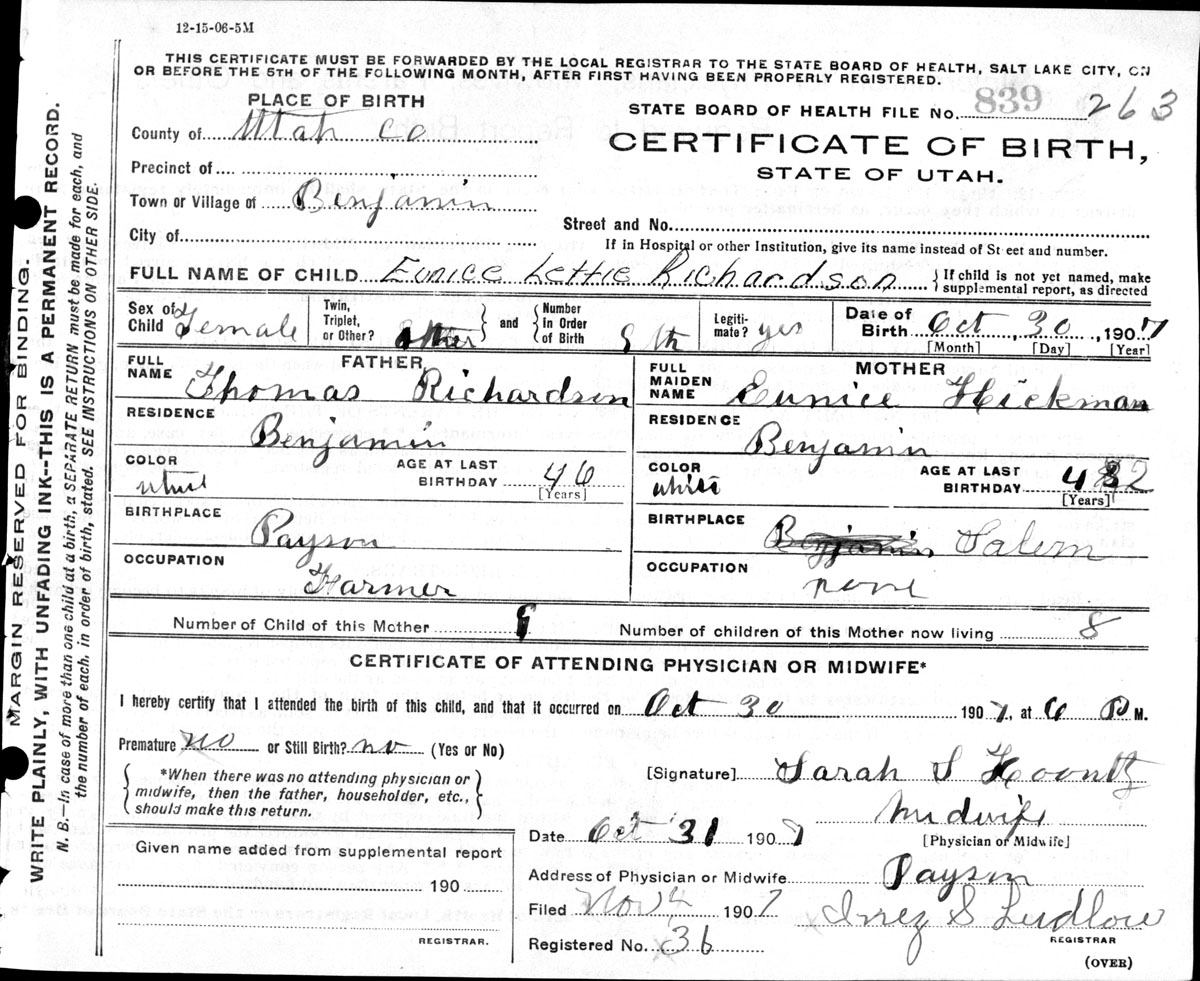 12-15-06-5M
THIS CERTIFICATE MUST BE FORWARDED BY THE LOCAL REGISTRAR TO THE STATE BOARD OF HEALTH, SALT LAKE CITY, ON
OR BEFORE THE 5TH OF THE FOLLOWING MONTH, AFTER FIRST HAVING BEEN PROPERLY REGISTERED.
PLACE OF BIRTH
STATE BOARD OF HEALTH FILE No. 839 263
County of Utah Co
CERTIFICATE OF BIRTH,
STATE OF UTAH.
Precinct of
Town or Village of Benjamin
Street and No.
City of
If in Hospital or other Institution, give its name instead of Street and number.
FULL NAME OF CHILD Eunice Lettie Richardson
If child is not yet named, make
supplemental report, as directed
Sex of Child Female
Twin, Triplet, or Other? other
and Number in Order of Birth 9th
Legitimate? yes
Date of Birth Oct 30, 1907
[Month] [Day] [Year]
FATHER
FULL NAME Thomas Richardson
MOTHER
FULL MAIDEN NAME Eunice Hickman
RESIDENCE Benjamin
RESIDENCE Benjamin
COLOR white
AGE AT LAST BIRTHDAY 46
[Years]
COLOR white
AGE AT LAST BIRTHDAY 42
[Years]
BIRTHPLACE Payson
BIRTHPLACE Benjamin Salem
OCCUPATION Farmer
OCCUPATION none
Number of Child of this Mother 9
Number of children of this Mother now living 8
CERTIFICATE OF ATTENDING PHYSICIAN OR MIDWIFE*
I hereby certify that I attended the birth of this child, and that it occurred on Oct 30 1907, at 6 P M.
Premature no or Still Birth? no (Yes or No)
*When there was no attending physician or
midwife, then the father, householder, etc.,
should make this return.
[Signature] Sarah S Koontz
Midwife
[Physician or Midwife]
Date Oct 31 1907
Given name added from supplemental report
190
REGISTRAR.
Address of Physician or Midwife Payson
Filed Nov 4 1907 Inez S Ludlow
REGISTRAR
Registered No. 36
(OVER)
MARGIN RESERVED FOR BINDING.
WRITE PLAINLY, WITH UNFADING INK--THIS IS A PERMANENT RECORD.
N. B.—In case of more than one child at a birth, a SEPARATE RETURN must be made for each, and
the number of each, in order of birth, stated. SEE INSTRUCTIONS ON OTHER SIDE.